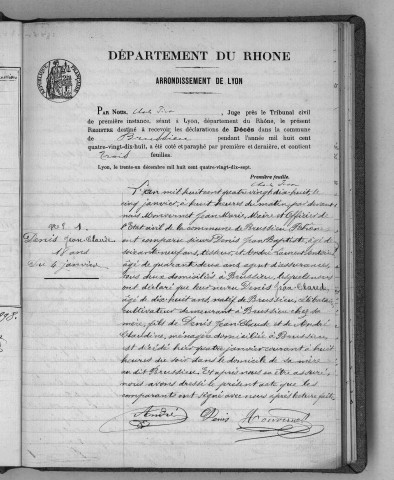 DÉPARTEMENT DU RHONE
ARRONDISSEMENT DE LYON
RÉPUBLIQUE FRANÇAISE
PAR NOUS, Juge près le Tribunal civil
de première instance, séant à Lyon, département du Rhône, le présent
REGISTRE destiné à recevoir les déclarations de Décès dans la commune
de Brussieu pendant l'année mil huit cent
quatre-vingt-dix-huit, a été coté et paraphé par première et dernière, et contient
trois feuilles.
Lyon, le trente-un décembre mil huit cent quatre-vingt-dix-sept.
Première feuille.
L'an mil huit cent quatre vingt dix huit, le
cinq janvier, à huit heures du matin par devant
nous Jean Marie, Maire et Officier de
l'Etat civil de la commune de Brussieu, Rhône
ont comparu sieurs Denis Jean Baptiste, âgé de
soixante neuf ans, et André Laurent
âgé de quarante deux ans
tous deux domiciliés à Brussieu, lesquels nous
ont déclaré que leur neveu Denis Jean Claude
âgé de dix huit ans, natif de Brussieu, célibataire
cultivateur demeurant à Brussieu chez sa
mère, fils de Denis Jean Claude et de André
Claudine, ménagère domiciliée à Brussieu
est décédé hier quatre janvier courant à huit
heures du soir dans le domicile de sa mère
au dit Brussieu. Et après nous en être assuré
nous avons dressé le présent acte que les
comparants ont signé avec nous après lecture faite
André Denis
N° 1
Denis Jean Claude
18 ans
Du 4 janvier